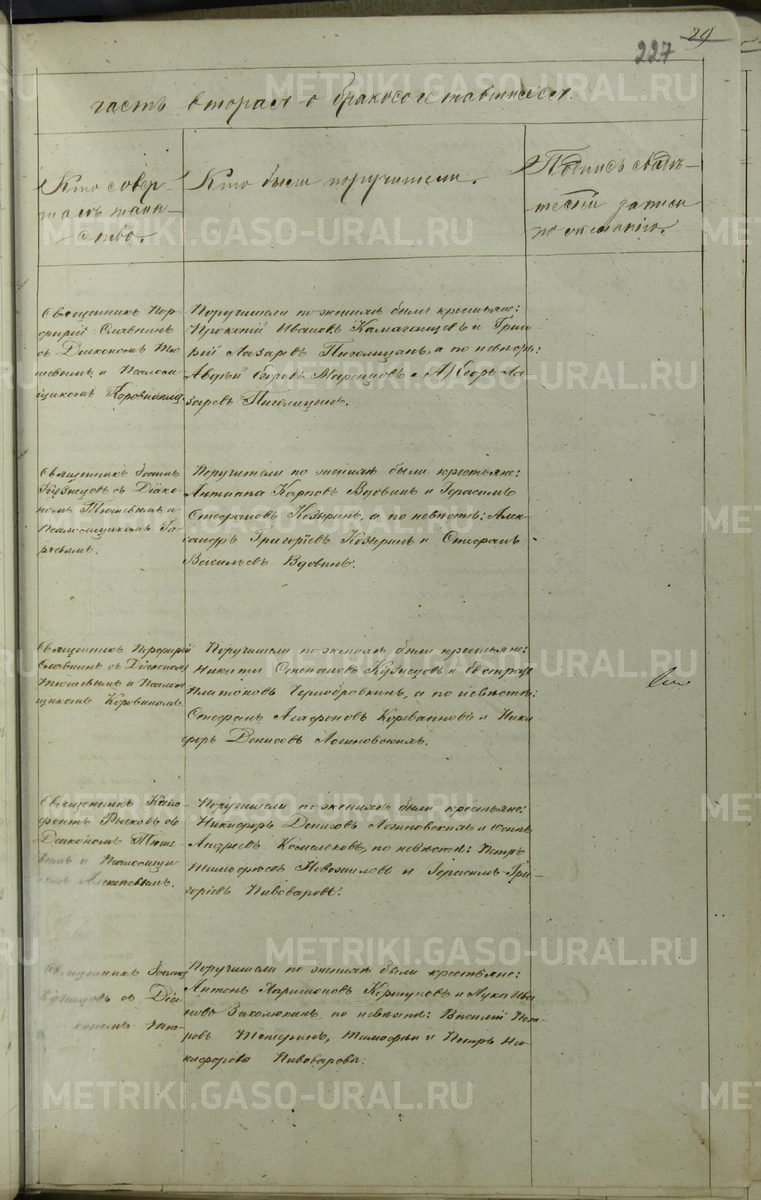 29
227
часть вторая о бракосочетавшихся.
Кто совер-
шалъ таин-
ство.
Кто были поручители.
Подпись свидѣ-
телей записи
по желанію.
Священникъ Пор-
фирій Славнинъ
съ Діакономъ Тю-
шевымъ и Псалом-
щикомъ Коровинымъ
Поручители по женихѣ были крестьяне:
Прокопій Ивановъ и Григо-
рій Лазаревъ Пиголицынъ, а по невѣстѣ:
Авдѣй и Ѳедоръ Ла-
заревъ Пиголицынъ.
Священникъ Іоаннъ
Кузнецовъ съ Діако-
номъ Тюшевымъ и
Псаломщикомъ
Поручители по женихѣ были крестьяне:
Антипа Карповъ Вдовинъ и Герасимъ
Стефановъ Козыринъ, а по невѣстѣ: Алек-
сандръ Григоріевъ Козыринъ и Стефанъ
Васильевъ Вдовинъ.
Священникъ Порфирій
Славнинъ съ Діакономъ
Тюшевымъ и Псалом-
щикомъ Коровинымъ.
Поручители по женихѣ были крестьяне:
Никита Степановъ Кузнецовъ и
Платоновъ Чернобровкинъ, а по невѣстѣ:
Стефанъ Агафоновъ и Ники-
форъ Денисовъ Логиновскихъ.
Священникъ
Рычковъ съ
Діакономъ Тюше-
вымъ и Псаломщи-
комъ
Поручители по женихѣ были крестьяне:
Никифоръ Денисовъ Логиновскихъ и
Андреевъ по невѣстѣ: Петръ
Тимофѣевъ Новожиловъ и Герасимъ Гри-
горіевъ Пивоваровъ.
Священникъ Іоаннъ
Кузнецовъ съ Діа-
кономъ
Поручители по женихѣ были крестьяне:
Антонъ Харитоновъ Коршуновъ и Лука Ива-
новъ по невѣстѣ: Василій Пет-
ровъ Тетеринъ, Тимофей и Петръ Ни-
кифоровы Пивоваровы.
METRIKI.GASO-URAL.RU